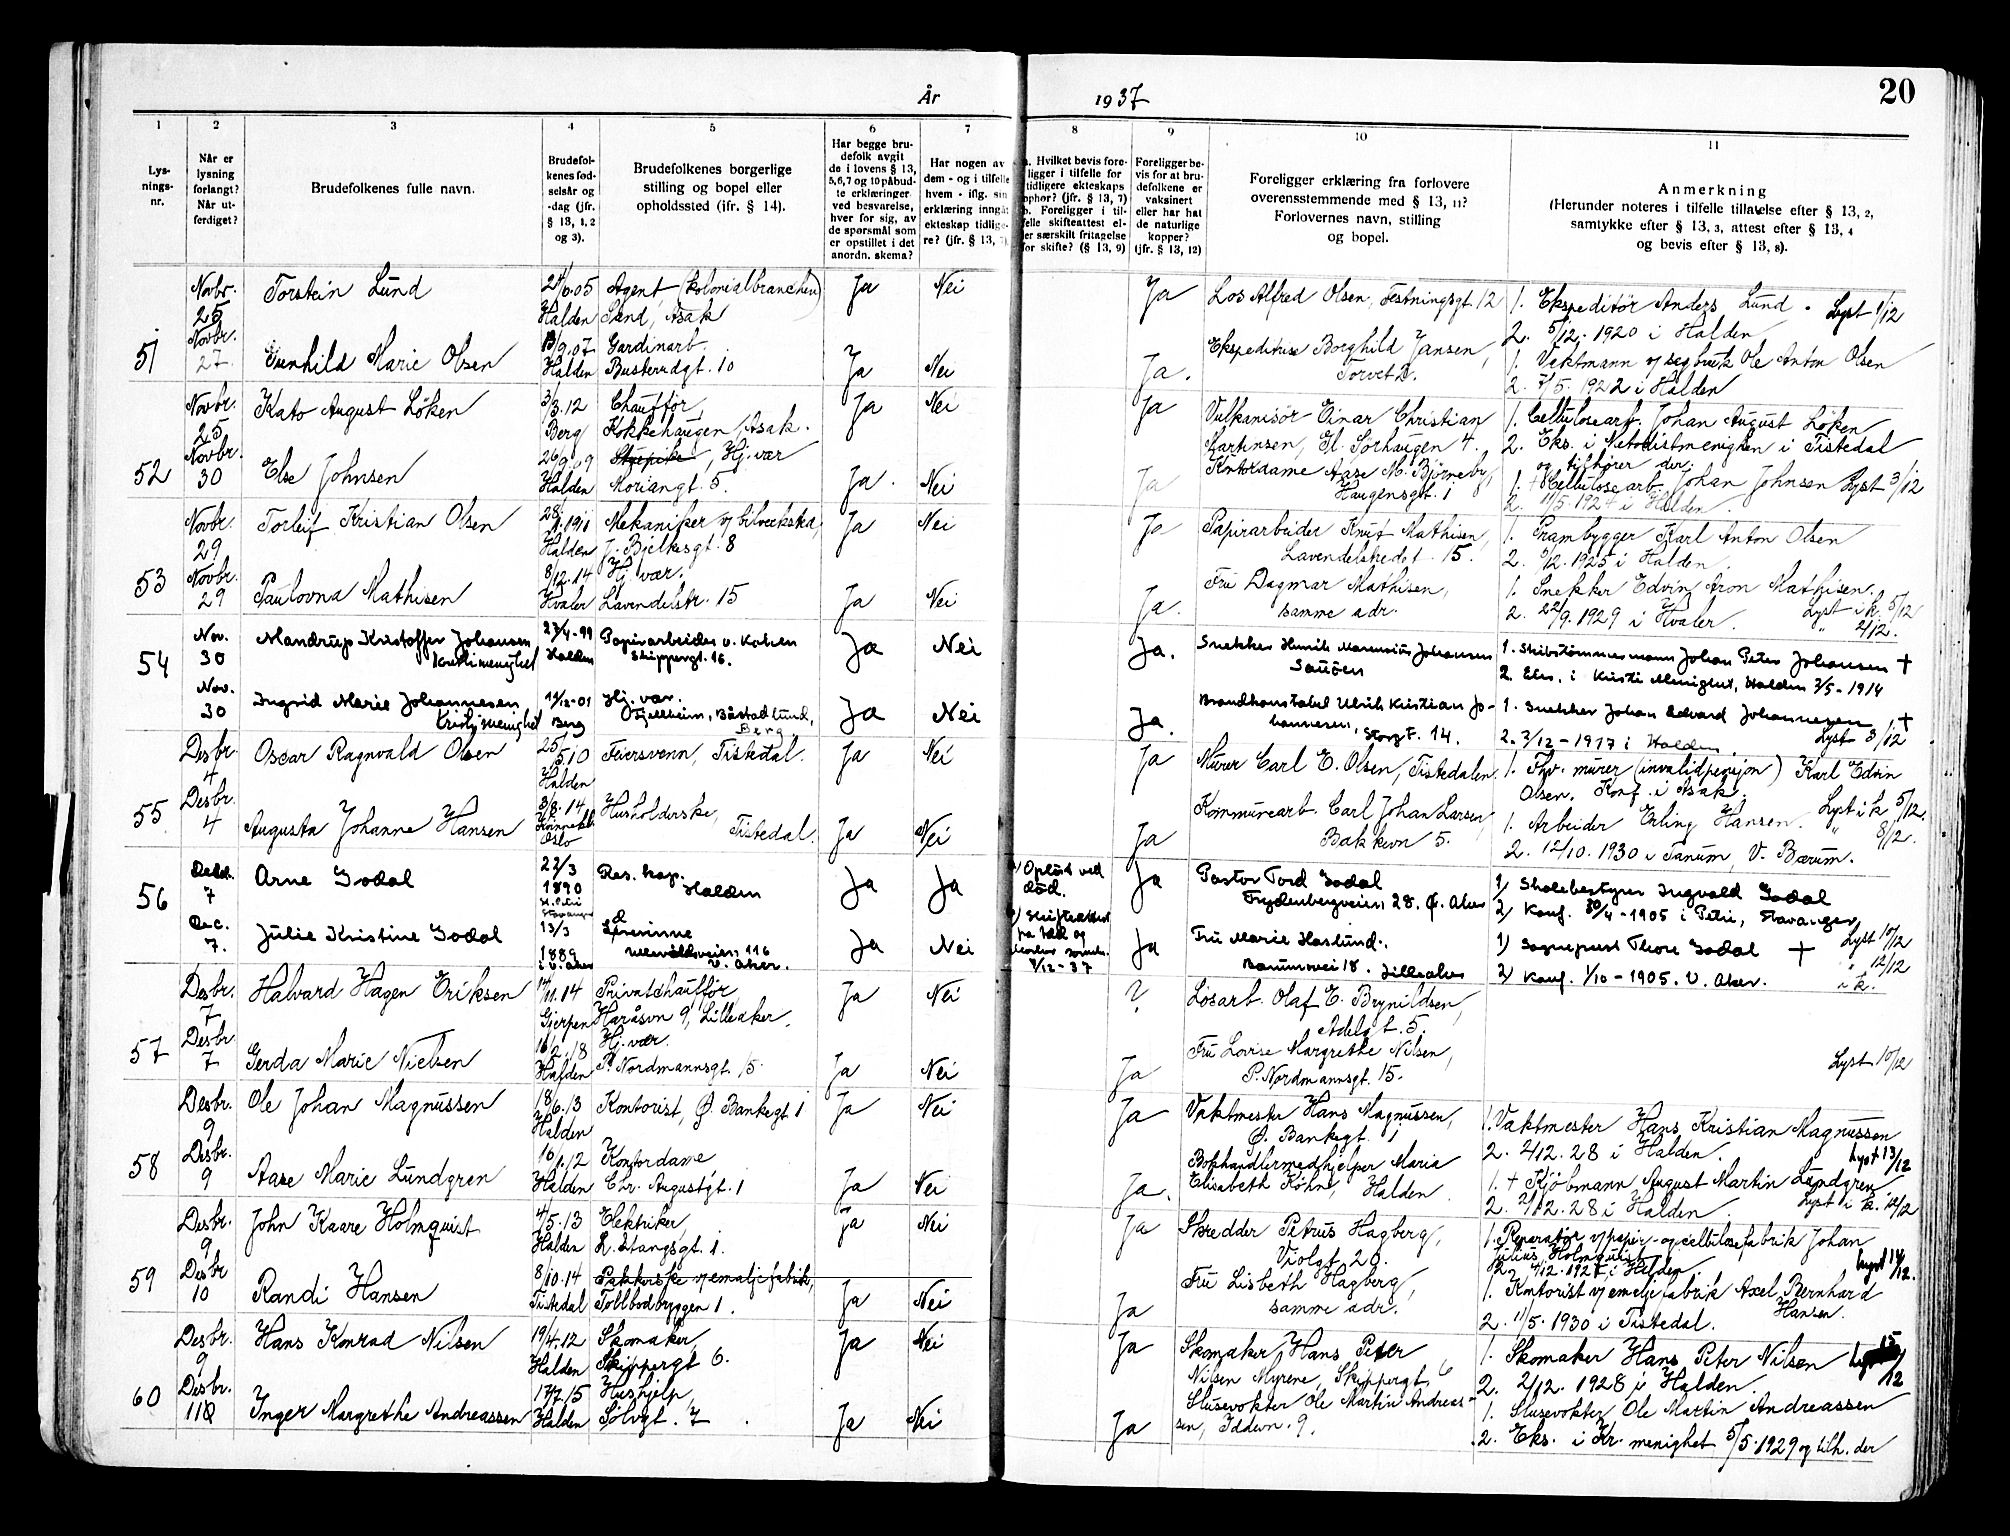 20
År 1937
1 2 3 4 5 6 7 8 9 10 11
Lys-
nings-
nr.
Når er
lysning
forlangt?
Når ut-
ferdiget?
Brudefolkenes fulle navn.
Brudefol-
kenes fød-
selsår og
-dag (jfr.
§ 13, 1, 2
og 3).
Brudefolkenes borgerlige
stilling og bopel eller
opholdssted (ifr. § 14).
Har begge bru-
defolk avgit
de i lovens § 13,
5,6,7 og 10 påbud-
te erklæringer
ved besvarelse,
hver for sig, av
de spørsmål som
er opstillet i det
anordn. skema?
Har nogen av
dem - og i tilfelle
hvem - iflg. sin
erklæring inngåt
ekteskap tidlige-
re? (jfr. § 13, 7)
a. Hvilket bevis fore-
ligger i tilfelle for
tidligere ekteskaps
ophør? (jfr. § 13, 7)
b. Foreligger i til-
felle skifteattest el-
ler særskilt fritagelse
for skifte? (§ 13, 9)
Foreligger be-
vis for at bru-
defolkene er
vaksinert
eller har hat
de naturlige
kopper?
(jfr. § 13, 12)
Foreligger erklæring fra forlovere
overensstemmende med § 13, 11?
Forlovernes navn, stilling
og bopel.
Anmerkning
(Herunder noteres i tilfelle tillatelse efter § 13, 2,
samtykke efter § 13, 3, attest efter § 13, 4
og bevis efter § 13, 8).
51
Novbr. 25 Torstein Lund 05 Halden Agent (kolonialbranchen) Sand, Asak Ja Nei Ja Los Alfred Olsen, Festningsgt. 12 1. Ekspeditör Anders Lund. Lyst 1/12
2. 5/12. 1920 i Halden
Novbr. 27 Gunhild Marie Olsen 13/9.07 Halden Gardinarb. Busterudgt. 10 Ja Nei Ja. Ekspeditrise Borghild Jansen, Torvet 1. Vaktmann v/ segbruk Ole Anton Olsen
2. 7/5. 1922 i Halden
52
Novbr. 25 Kato August Löken 3/3.12 Berg Chauffør, Kokkehaugen, Asak. Ja Nei Ja Vulkanisör Einar Christian Martinsen, Gl. Sorhaugen 4. 1. Cellulosearb. Johan August Löken
2. Eks. i Metodistmenigheten i Tistedal og tilhører der.
Novbr. 30 Else Johnsen 26/9.09 Halden Hj. vær Moriangt. 5. Ja. Nei Ja Kontordame Aase M. Björneby, Haugensgt. 1 1. + Cellulosearb. Johan Johnsen Lyst 3/12
2. 11/5. 1924 i Halden.
53
Novbr. 29 Torleif Kristian Olsen Halden Mekaniker v/ bilverksted, J. Bjelkesgt. 8 Ja Nei Ja Papirarbeider Knut Mathisen, Lavendelstredet 15. 1. Prambygger Karl Anton Olsen
2. 1925 i Halden.
Novbr. 29 Paulovna Mathisen 8/12.14 Hvaler Hj. vær. Lavendelstr. 15 Ja Nei Ja. Fru Dagmar Mathisen, samme adr. 1. Snekker Edvin Aron Mathisen. Lyst i k. 5/12
2. 22/9. 1929 i Hvaler.
54
Nov. 30 Mandrup Kristoffer Johansen Kristi menighet 27/4-99 Halden Papirarbeider Skippergt. 16. Ja Nei Ja. Snekker Henrik Johansen Sauøen 1. Skibstømmermann Johan Peter Johansen +
2. Eks. i Kristi Menighet, Halden 3/5-1914
Nov. 30 Ingrid Marie Johannesen Kristi menighet 14/12-01 Berg Hj. vær. Fjellheim, Båstadlund, Berg Ja Nei Ja. Brandkonstabel Ulrik Kristian Johannesen, Storgt. 14. 1. Snekker Johan Edvard Johannesen +
2. 3/12-1917 i Halden. Lyst 3/12
55
Desbr. 4 Oscar Ragnvald Olsen 25/5.10 Halden Feiersvenn, Tistedal. Ja Nei Ja Murer Carl E. Olsen, Tistedalen. 1. Fhv. murer (invalidpensjon) Karl Edvin Olsen. Konf. i Asak.
Desbr. 4 Augusta Johanne Hansen 3/8.14 Oslo Husholderske, Tistedal. Ja Nei Ja Kommunearb. Carl Johan Larsen, Bakkevn 5. 1. Arbeider Erling Hansen. Lyst i k 5/12. " 8/12.
2. 12/10. 1930 i Tanum, V. Bærum.
56
Desbr. 7 Arne Godal 22/3 1890 St. Petri Stavanger Res. kap. Halden Ja Ja a) Opløst ved død. Ja Pastor Tord Godal Frydenbergveien 28. Ø. Aker 1) Skolebestyrer Ingvald Godal
2) Konf. 30/4-1905 i Petri, Stavanger
Dec. 7. Julie Kristine Godal 13/3 1889 i V. Aker Lærerinne Ullevålsveien 116 V. Aker. Ja Nei 8/12-37 Ja Fru Marie Haslund. Bærumsvei 18. Lilleaker 1) Sogneprest Thore Godal + Lyst 10/12 " 12/12 i k.
2) Konf. 1/10-1905. V. Aker.
57
Desbr. 7 Halvard Hagen Eriksen 14/11.14 Gjerpen Privatchauffør Haråsvn 9, Lilleaker. Ja Nei ? Løsarb. Olaf E. Brynildsen, Adelgt. 5.
Desbr. 7 Gerda Marie Nielsen 16/2.18 Halden Hj. vær. P. Nordmannsgt. 15. Ja Nei Ja Fru Lovise Margrethe Nilsen, P. Nordmannsgt. 15. Lyst 10/12
58
Desbr. 9 Ole Johan Magnussen 18/6.13 Halden Kontorist, Ø. Bankegt 1 Ja Nei Ja Vaktmester Hans Magnussen, Ø. Bankegt. 1 1. Vaktmester Hans Kristian Magnussen
2. 2/12. 28 i Halden.
Desbr. 9 Aase Marie Lundgren Halden Kontordame Chr. Augustgt. 1 Ja Nei Ja. Bokhandlermedhjelper Maria Elisabeth Köhne, Halden. Lyst 13/12
1. + Kjöbmann August Martin Lundgren
2. 2/12. 28 i Halden. Lyst i k. 12/12
59
Desbr. 9 John Kaare Holmquist 4/5.13 Halden Elektriker, L. Stangsgt. 1. Ja Nei Ja Skredder Petrus Hagberg, Violgt 20. 1. Reparatör v/ papir- og cellulosefabrik Johan Julius Holmquist
2. 4/12. 1927 i Halden. Lyst 14/12.
Desbr 10 Randi Hansen 8/10.14 Tistedal Pakkerske v/ emaljefabrik, Tollbodbryggen 1. Ja Nei Ja Fru Lisbeth Hagberg, samme adr. 1. Kontorist v/ emaljefabrik Axel Bernhard Hansen.
2. 11/5. 1930 i Tistedal.
60
Desbr. 9 Hans Konrad Nilsen 19/4.12 Halden Skomaker, Skippergt 6. Ja Nei Ja Skomaker Hans Peter Nilsen Myrene, Skippergt. 6 1. Skomaker Hans Peter Nilsen Lyst 15/12
2. 2/12. 1928 i Halden.
Desbr. 11 Inger Margrethe Andreassen 17/7.15 Halden Hushjelp, Sølvgt. 7. Ja Nei Ja Slusevokter Ole Martin Andreassen, Iddevn. 9. 1. Slusevokter Ole Martin Andreassen
2. Eks. i Kr. menighet 5/5. 1929 og tilh. der